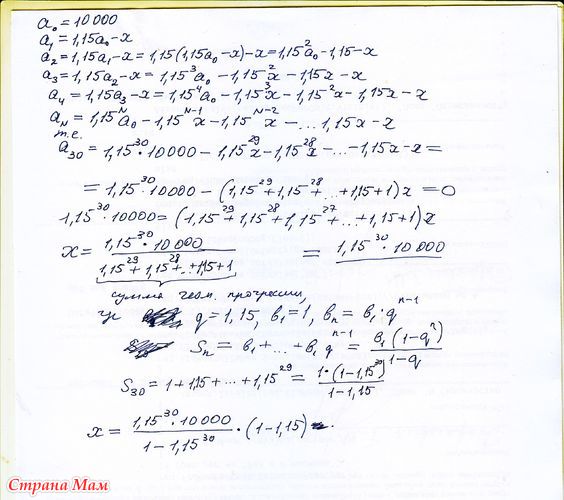 a₀ = 10 000
a₁ = 1,15a₀ - x
a₂ = 1,15a₁ - x = 1,15(1,15a₀ - x) - x = 1,15²a₀ - 1,15 - x
a₃ = 1,15a₂ - x = 1,15³a₀ - 1,15²x - 1,15x - x
a₄ = 1,15a₃ - x = 1,15⁴a₀ - 1,15³x - 1,15²x - 1,15x - x
a_N = 1,15^N a₀ - 1,15^(N-1) x - 1,15^(N-2) x - ... 1,15x - x
т.е.
a₃₀ = 1,15³⁰·10000 - 1,15²⁹x - 1,15²⁸x - ... - 1,15x - x =
= 1,15³⁰·10000 - (1,15²⁹ + 1,15²⁸ + ... + 1,15 + 1)x = 0
1,15³⁰·10000 = (1,15²⁹ + 1,15²⁸ + 1,15²⁷ + ... + 1,15 + 1)x
x = 1,15³⁰·10 000 / (1,15²⁹ + 1,15²⁸ + ... + 1,15 + 1) = 1,15³⁰·10 000
сумма геом. прогрессии,
где q = 1,15, b₁ = 1, bₙ = b₁·q^(n-1)
Sₙ = b₁ + ... + b₁q^(n-1) = b₁(1 - qⁿ) / (1 - q)
S₃₀ = 1 + 1,15 + ... + 1,15²⁹ = 1·(1 - 1,15³⁰) / (1 - 1,15)
x = 1,15³⁰·10 000 / (1 - 1,15³⁰) · (1 - 1,15)
Страна Мам